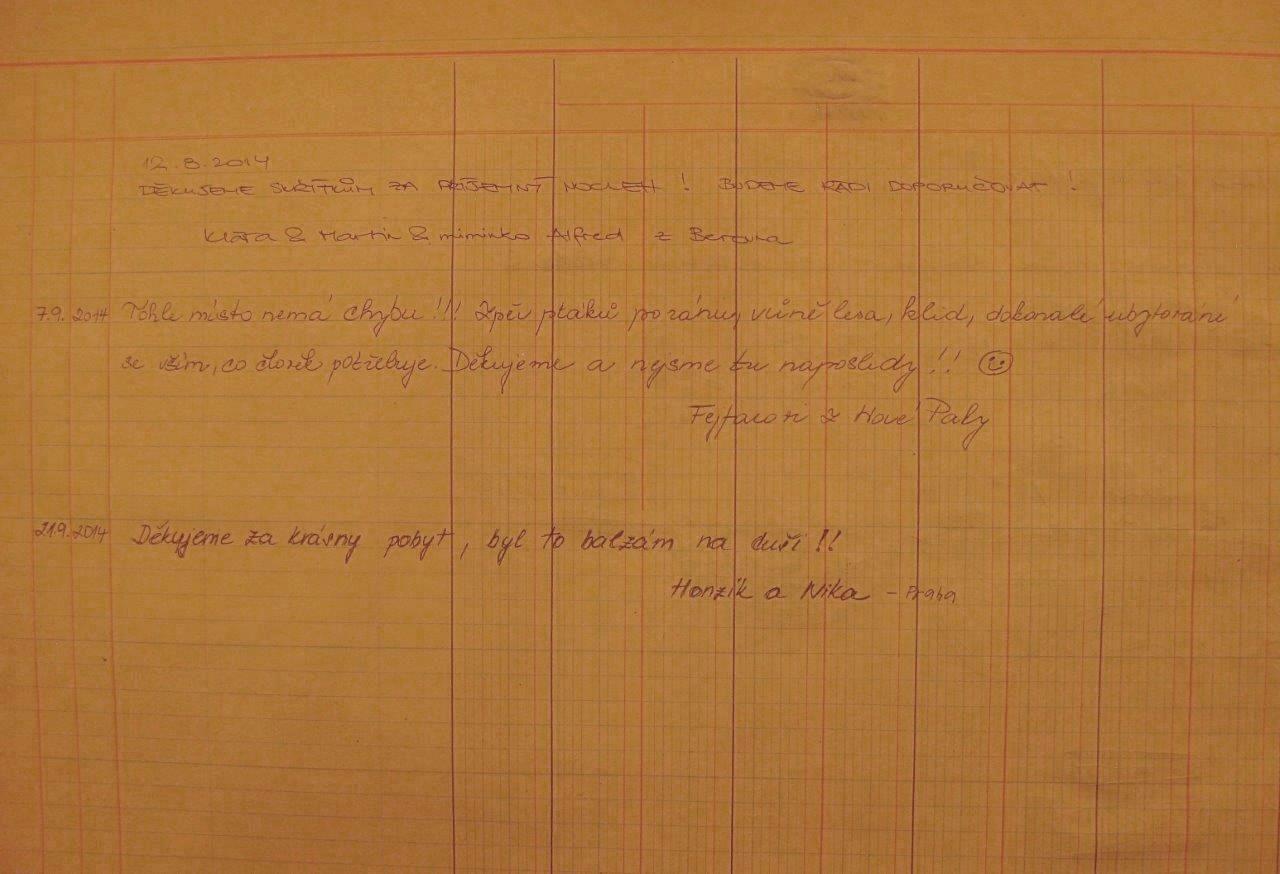 12.8.2014
DĚKUJEME SKŘÍTKŮM ZA PŘÍJEMNÝ NOCLEH! BUDEME RÁDI DOPORUČOVAT!
Klára & Martin & miminko Alfred z Berouna
7.9.2014 Tohle místo nemá chybu!!! Zpěv ptáků po ránu, vůně lesa, klid, dokonalé ubytování
se vším, co člověk potřebuje. Děkujeme a nejsme tu naposledy!! ☺
Fejfarovi z Nové Paky
21.9.2014 Děkujeme za krásny pobyt, byl to balzám na duši!!
Honzík a Nika - Praha